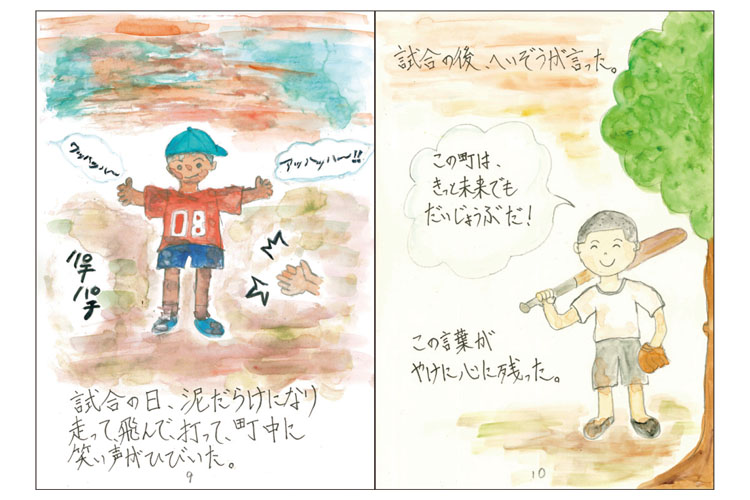 ワッハッハ〜
アッハッハ〜!!
08
パチ
パチ
試合の日、泥だらけになり
走って、飛んで、打って、町中に
笑い声がひびいた。
9
試合の後、へいぞうが言った。
この町は、
きっと未来でも
だいじょうぶだ！
この言葉が
やけに心に残った。
10